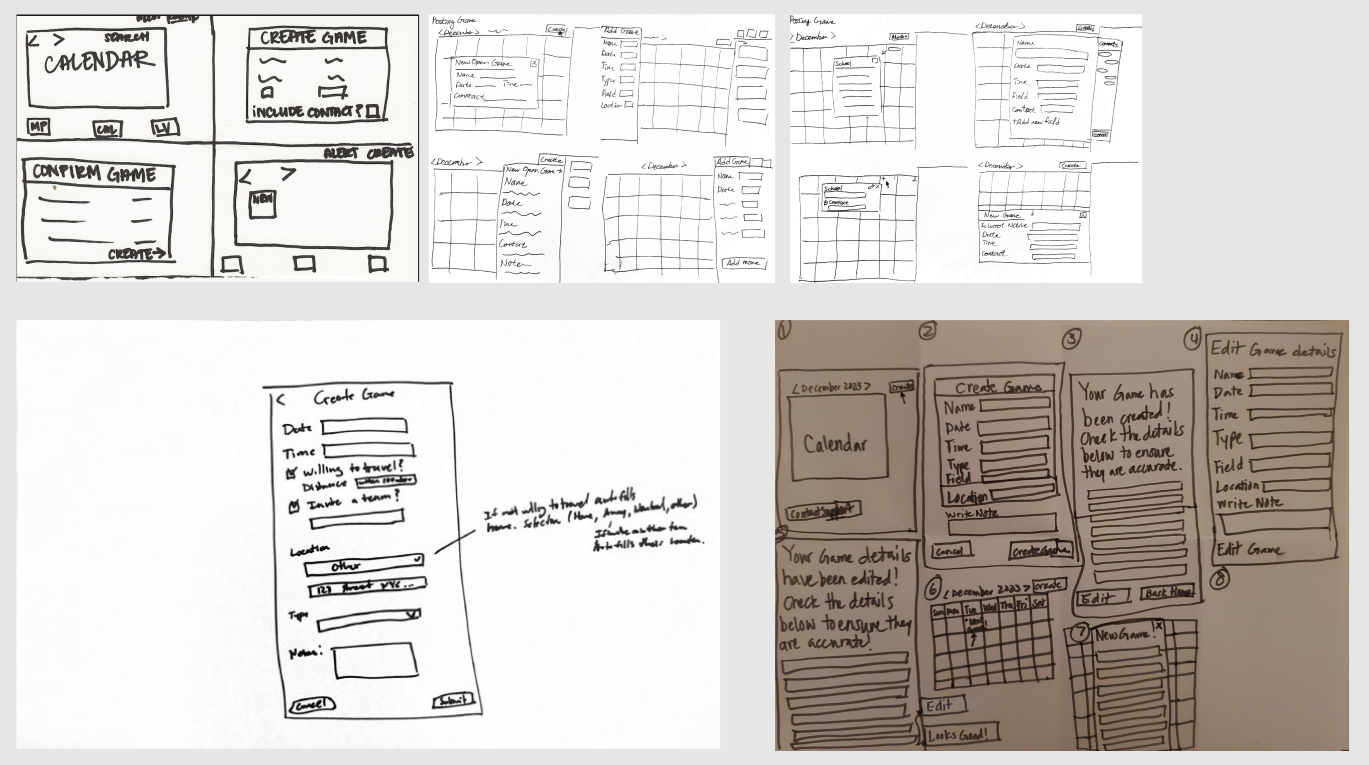 NEW
< > SEARCH
CALENDAR
MP CAL LV
CREATE GAME
INCLUDE CONTACT?
CONFIRM GAME
CREATE→
ALERT CREATE
< >
NEW
Posting Game
< December >
Create
New Open Game X
Name
Date Time
Contact
Add Game
Name
Date
Time
Type
Field
Location
< December >
Create
New Open Game
Name
Date
Time
Contact
Note
< December >
Add Game
Name
Date
Add more
Posting Game
< December >
School
< December >
Create
Name
Date
Time
Field
Contact
+Add new field
School
Contact
< December >
Create
New Game X
School Name
Date
Time
Contact
< Create Game
Date
Time
Willing to travel?
Distance
Invite a team?
Location
Other
123 Street NYC...
Type
Notes:
Cancel Submit
If not willing to travel autofills
home. Selection (Home, Away, Neutral, other)
If invite another team
Autofills their location.
1
< December 2023 > Create
Calendar
Contact Support
2
Create Game
Name
Date
Time
Type
Field
Location
Write Note
Cancel Create Game
3
Your Game has
been created!
Check the details
below to ensure
they are accurate.
Edit Back Home
4
Edit Game details
Name
Date
Time
Type
Field
Location
Write Note
Edit Game
5
Your Game details
have been edited!
Check the details
below to ensure they
are accurate!
6
< December 2023 > Create
Sun Mon Tue Wed Thu Fri Sat
Edit
Looks Good!
7
New Game! X
8